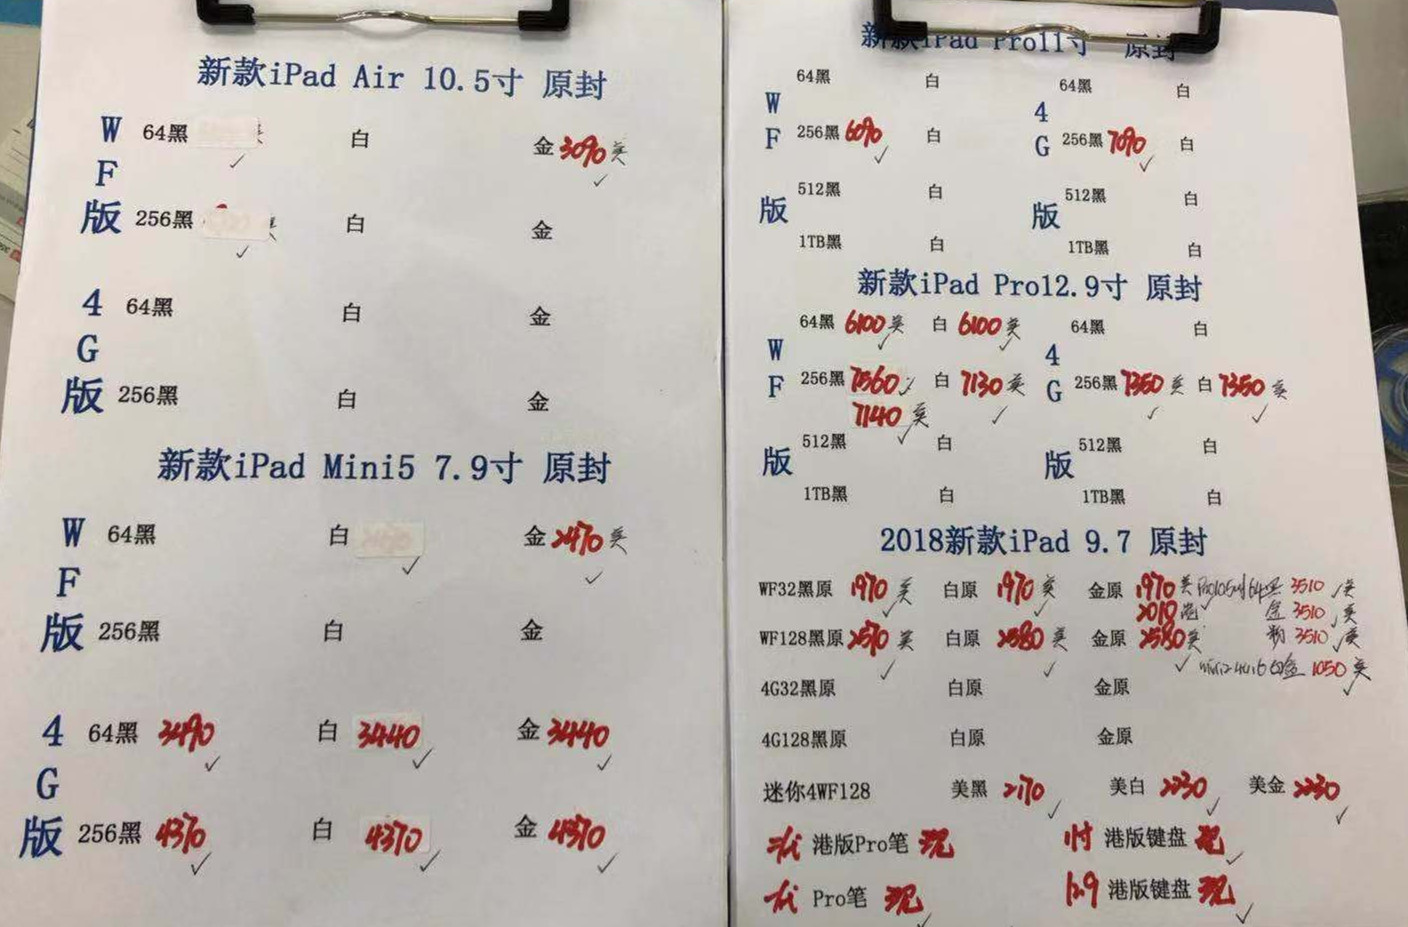 新款iPad Air 10.5寸 原封
WF版 64黑 白 金 3090 美
256黑 白 金
4G版 64黑 白 金
256黑 白 金
新款iPad Mini5 7.9寸 原封
WF版 64黑 白 金 2470 美
256黑 白 金
4G版 64黑 3490 白 3440 金 3440
256黑 4370 白 4370 金 4370
新款iPad Pro11寸 原封
WF版 64黑 白 4G版 64黑 白
256黑 6090 白 256黑 7090 白
512黑 白 512黑 白
1TB黑 白 1TB黑 白
新款iPad Pro12.9寸 原封
WF版 64黑 6100 美 白 6100 美 4G版 64黑 白
256黑 7560 白 7130 美 256黑 7350 美 白 7350 美
7140 美
512黑 白 512黑 白
1TB黑 白 1TB黑 白
2018新款iPad 9.7 原封
WF32黑原 1970 美 白原 1970 美 金原 1970 美 64黑 3510 美
2010 金 3510 美
WF128黑原 2570 美 白原 2580 美 金原 2580 美 粉 3510 美
1050 美
4G32黑原 白原 金原
4G128黑原 白原 金原
迷你4WF128 美黑 2170 美白 2230 美金 2230
港版Pro笔 现 11寸 港版键盘 现
Pro笔 现 12.9 港版键盘 现